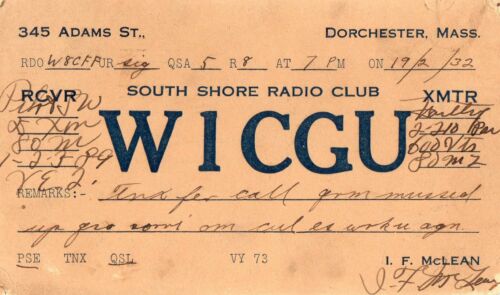 345 ADAMS ST., DORCHESTER, MASS.
RDO W8CFF UR sig QSA 5 R8 AT 7 PM ON 19/2/32
RCVR SOUTH SHORE RADIO CLUB XMTR
W1CGU
2-210
80 M
REMARKS:- Tnx fer call grm mussed
up gro sorri om cul es wrku agn.
PSE TNX QSL VY 73 I. F. McLEAN
I. F. McLean